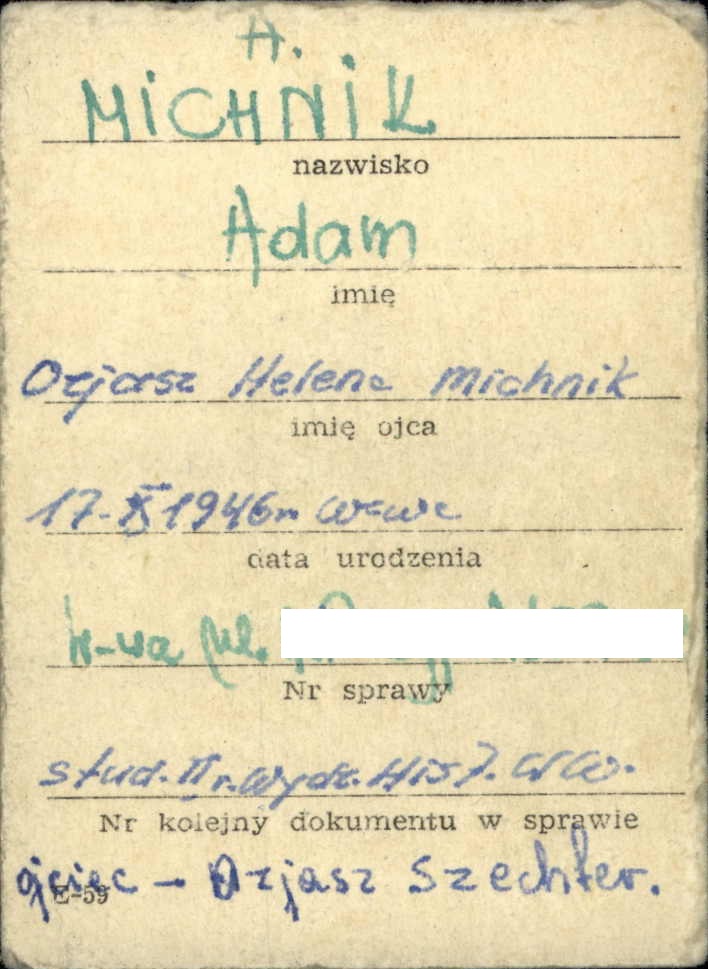 A.
MICHNIK
nazwisko
Adam
imię
Ozjasz Helena Michnik
imię ojca
17-X 1946r W-wa
data urodzenia
W-wa ul.
Nr sprawy
stud. II r. Wydz. Hist. UW.
Nr kolejny dokumentu w sprawie
ojciec - Ozjasz Szechter.
E-59